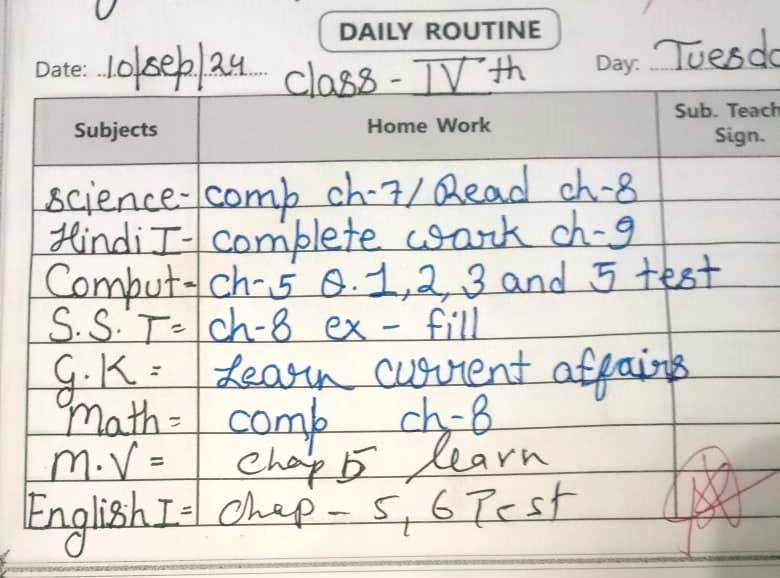 DAILY ROUTINE
Date: 10/sep/24 Class - IV th Day: Tuesda
Subjects Home Work Sub. Teach
Sign.
Science - comp ch-7/ Read ch-8
Hindi I - complete wark ch-9
Comput = ch-5 Q.1,2,3 and 5 test
S.S.T = ch-8 ex - fill
G.K = Learn current affairs
Math = comp ch-8
M.V = Chap 5 learn
English I = Chap - 5, 6 Test